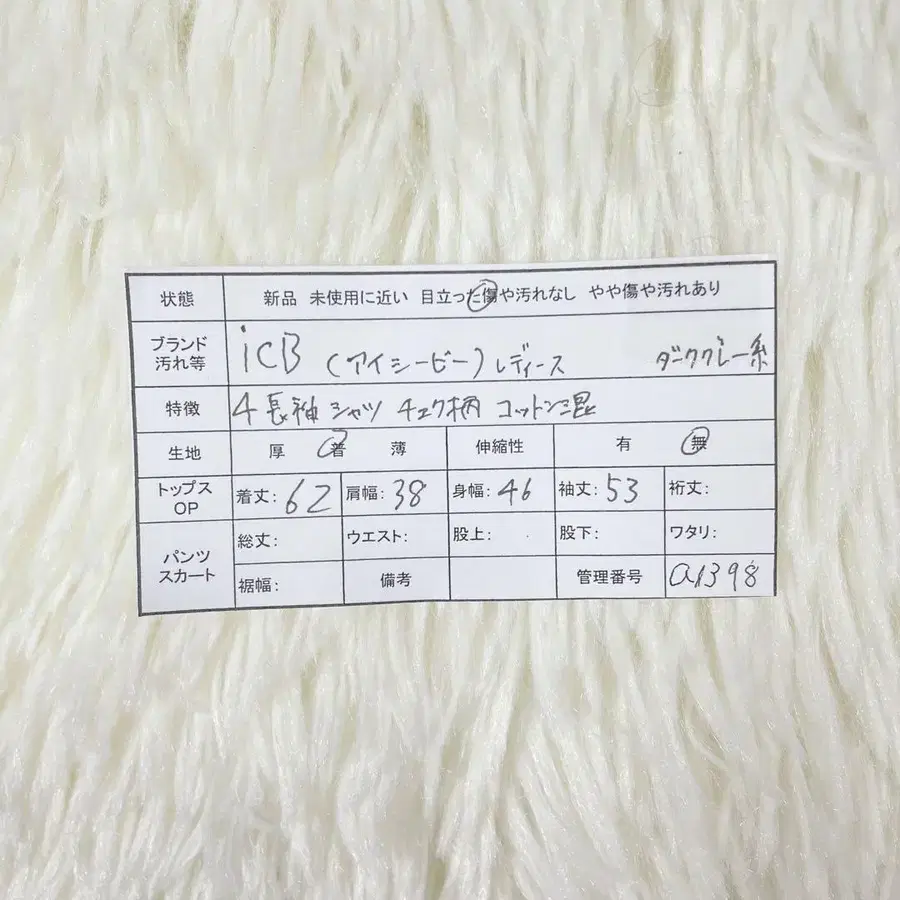 状態 新品 未使用に近い 目立った傷や汚れなし やや傷や汚れあり
ブランド
汚れ等 iCB (アイシービー) レディース ダークグレー系
特徴 4 長袖 シャツ チェク柄 コットン混
生地 厚 普 薄 伸縮性 有 無
トップス
OP 着丈: 62 肩幅: 38 身幅: 46 袖丈: 53 裄丈:
パンツ
スカート 総丈: ウエスト: 股上: 股下: ワタリ:
裾幅: 備考 管理番号 a1398